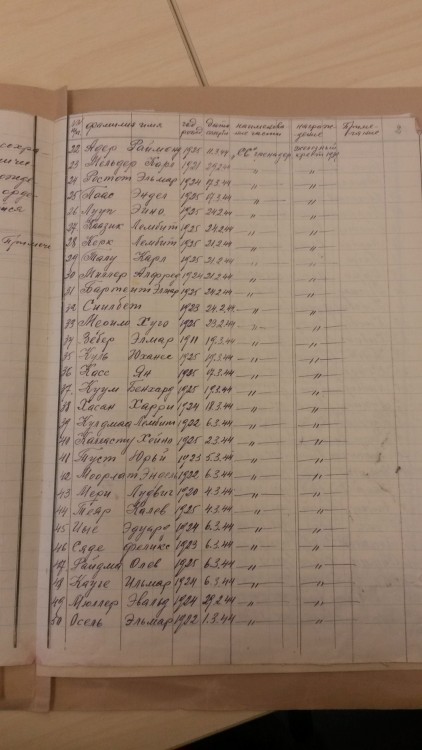 № фамилия имя год рожд дата наименование части награждение Примечание
22 Адер Раймонд 1925 11.3.44 „СС" гренадер железный крест
23 Мельдер Карл 1921 29.2.44 „ „
24 Ростот Эльмар 1924 17.3.44 „ „
25 Поас Эндел 1925 17.3.44 „ „
26 Лууп Эйно 1925 24.2.44 „ „
27 Каазик Лембит 1925 24.2.44 „ „
28 Корк Лембит 1925 21.2.44 „ „
29 Талу Карл 1925 21.2.44 „ „
30 Мюллер Алфред 1924 21.2.44 „ „
31 Бартент Элмар 1925 24.2.44 „ „
32 Сиилбет 1923 24.2.44 „ „
33 Меоим Хуго 1925 23.2.44 „ „
34 Зебер Элмар 1911 19.3.44 „ „
35 Куль Юханес 1925 19.3.44 „ „
36 Касс Ян 1925 17.3.44 „ „
37 Куум Бенхард 1925 19.3.44 „ „
38 Хасан Харри 1924 18.3.44 „ „
39 Куздмаа Лембит 1922 6.3.44 „ „
40 Камасту Хейно 1925 2.3.44 „ „
41 Туст Юрьй 1923 5.3.44 „ „
42 Моорлат Эндель 1922 6.3.44 „ „
43 Мери Лудвиг 1920 4.3.44 „ „
44 Теяр Калев 1925 4.3.44 „ „
45 Иые Эдуард 1924 6.3.44 „ „
46 Сяде Феликс 1923 6.3.44 „ „
47 Райдма Олев 1925 6.3.44 „ „
48 Кауге Ильмар 1924 6.3.44 „ „
49 Мюллер Эвальд 1924 29.2.44 „ „
50 Осель Эльмар 1922 1.3.44 „ „